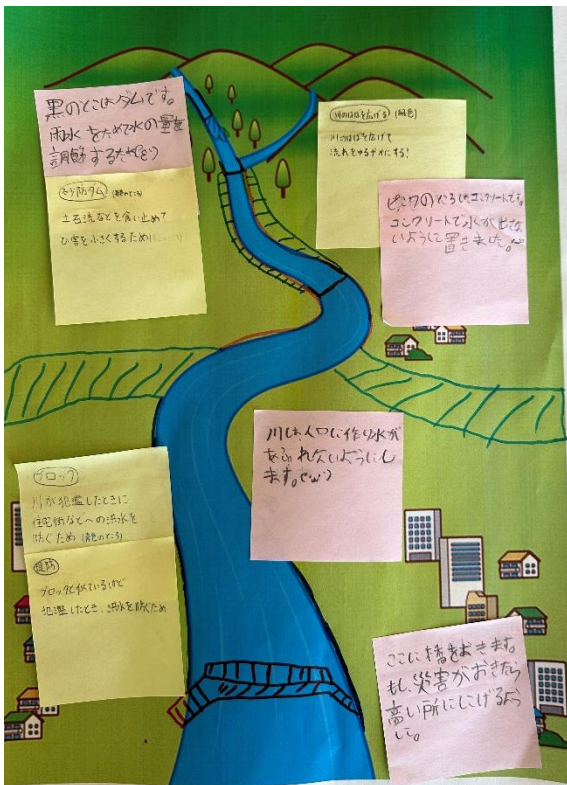 黒のとこはダムです。
雨水をためて水の量を
調節するため
砂防ダム
土石流などを食い止めて
ひ害を小さくするため
川のはばを広げる
川のはばを広げて
流れをゆるやかにする!
コンクリートで
コンクリートで水が出な
いようにして置きました。
川は、人口に作り水が
あふれないようにし
ます。
ブロック
川が氾濫したときに
住宅街などへの洪水を
防ぐため
堤防
ブロックと似ているけど
氾濫したとき、洪水を防ぐため
ここに橋をおきます。
もし、災害がおきたら
高い所ににげるよう
に。